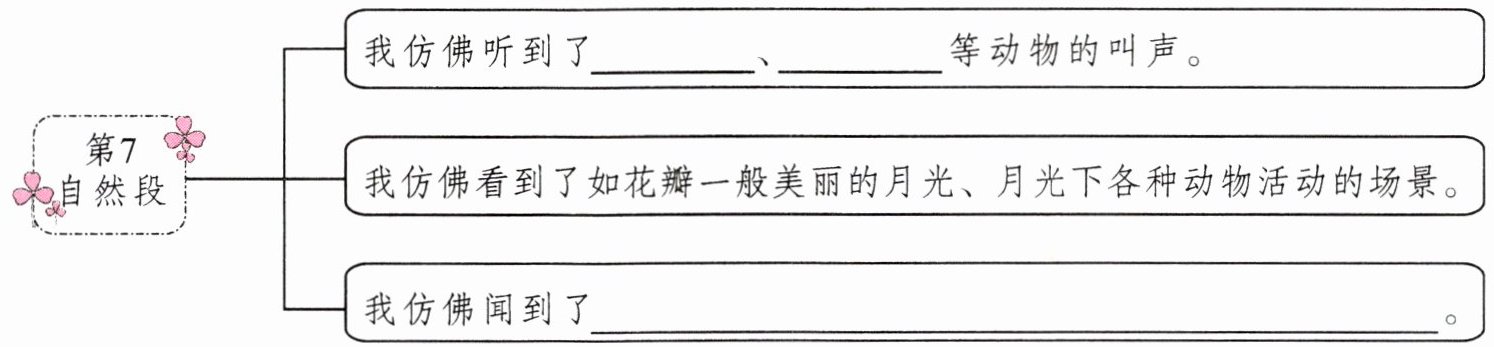 我仿佛听到了________、________等动物的叫声。
第7
自然段
我仿佛看到了如花瓣一般美丽的月光、月光下各种动物活动的场景。
我仿佛闻到了________________________________________。